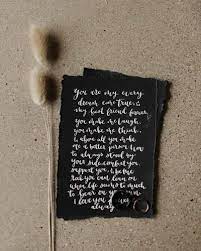 You are my every
dream come true, &
my best friend forever
you make me laugh,
you make me think,
& above all you make
me a better person. Vow
to always stand by
your side, comfort you,
support you, & be the
rock you can lean on
when life seems to much
to bear on your own
I love you always
always